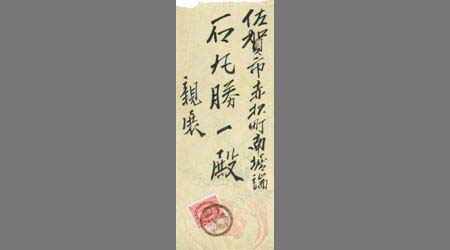 佐賀市赤松町南堀端
石丸勝一殿
親展